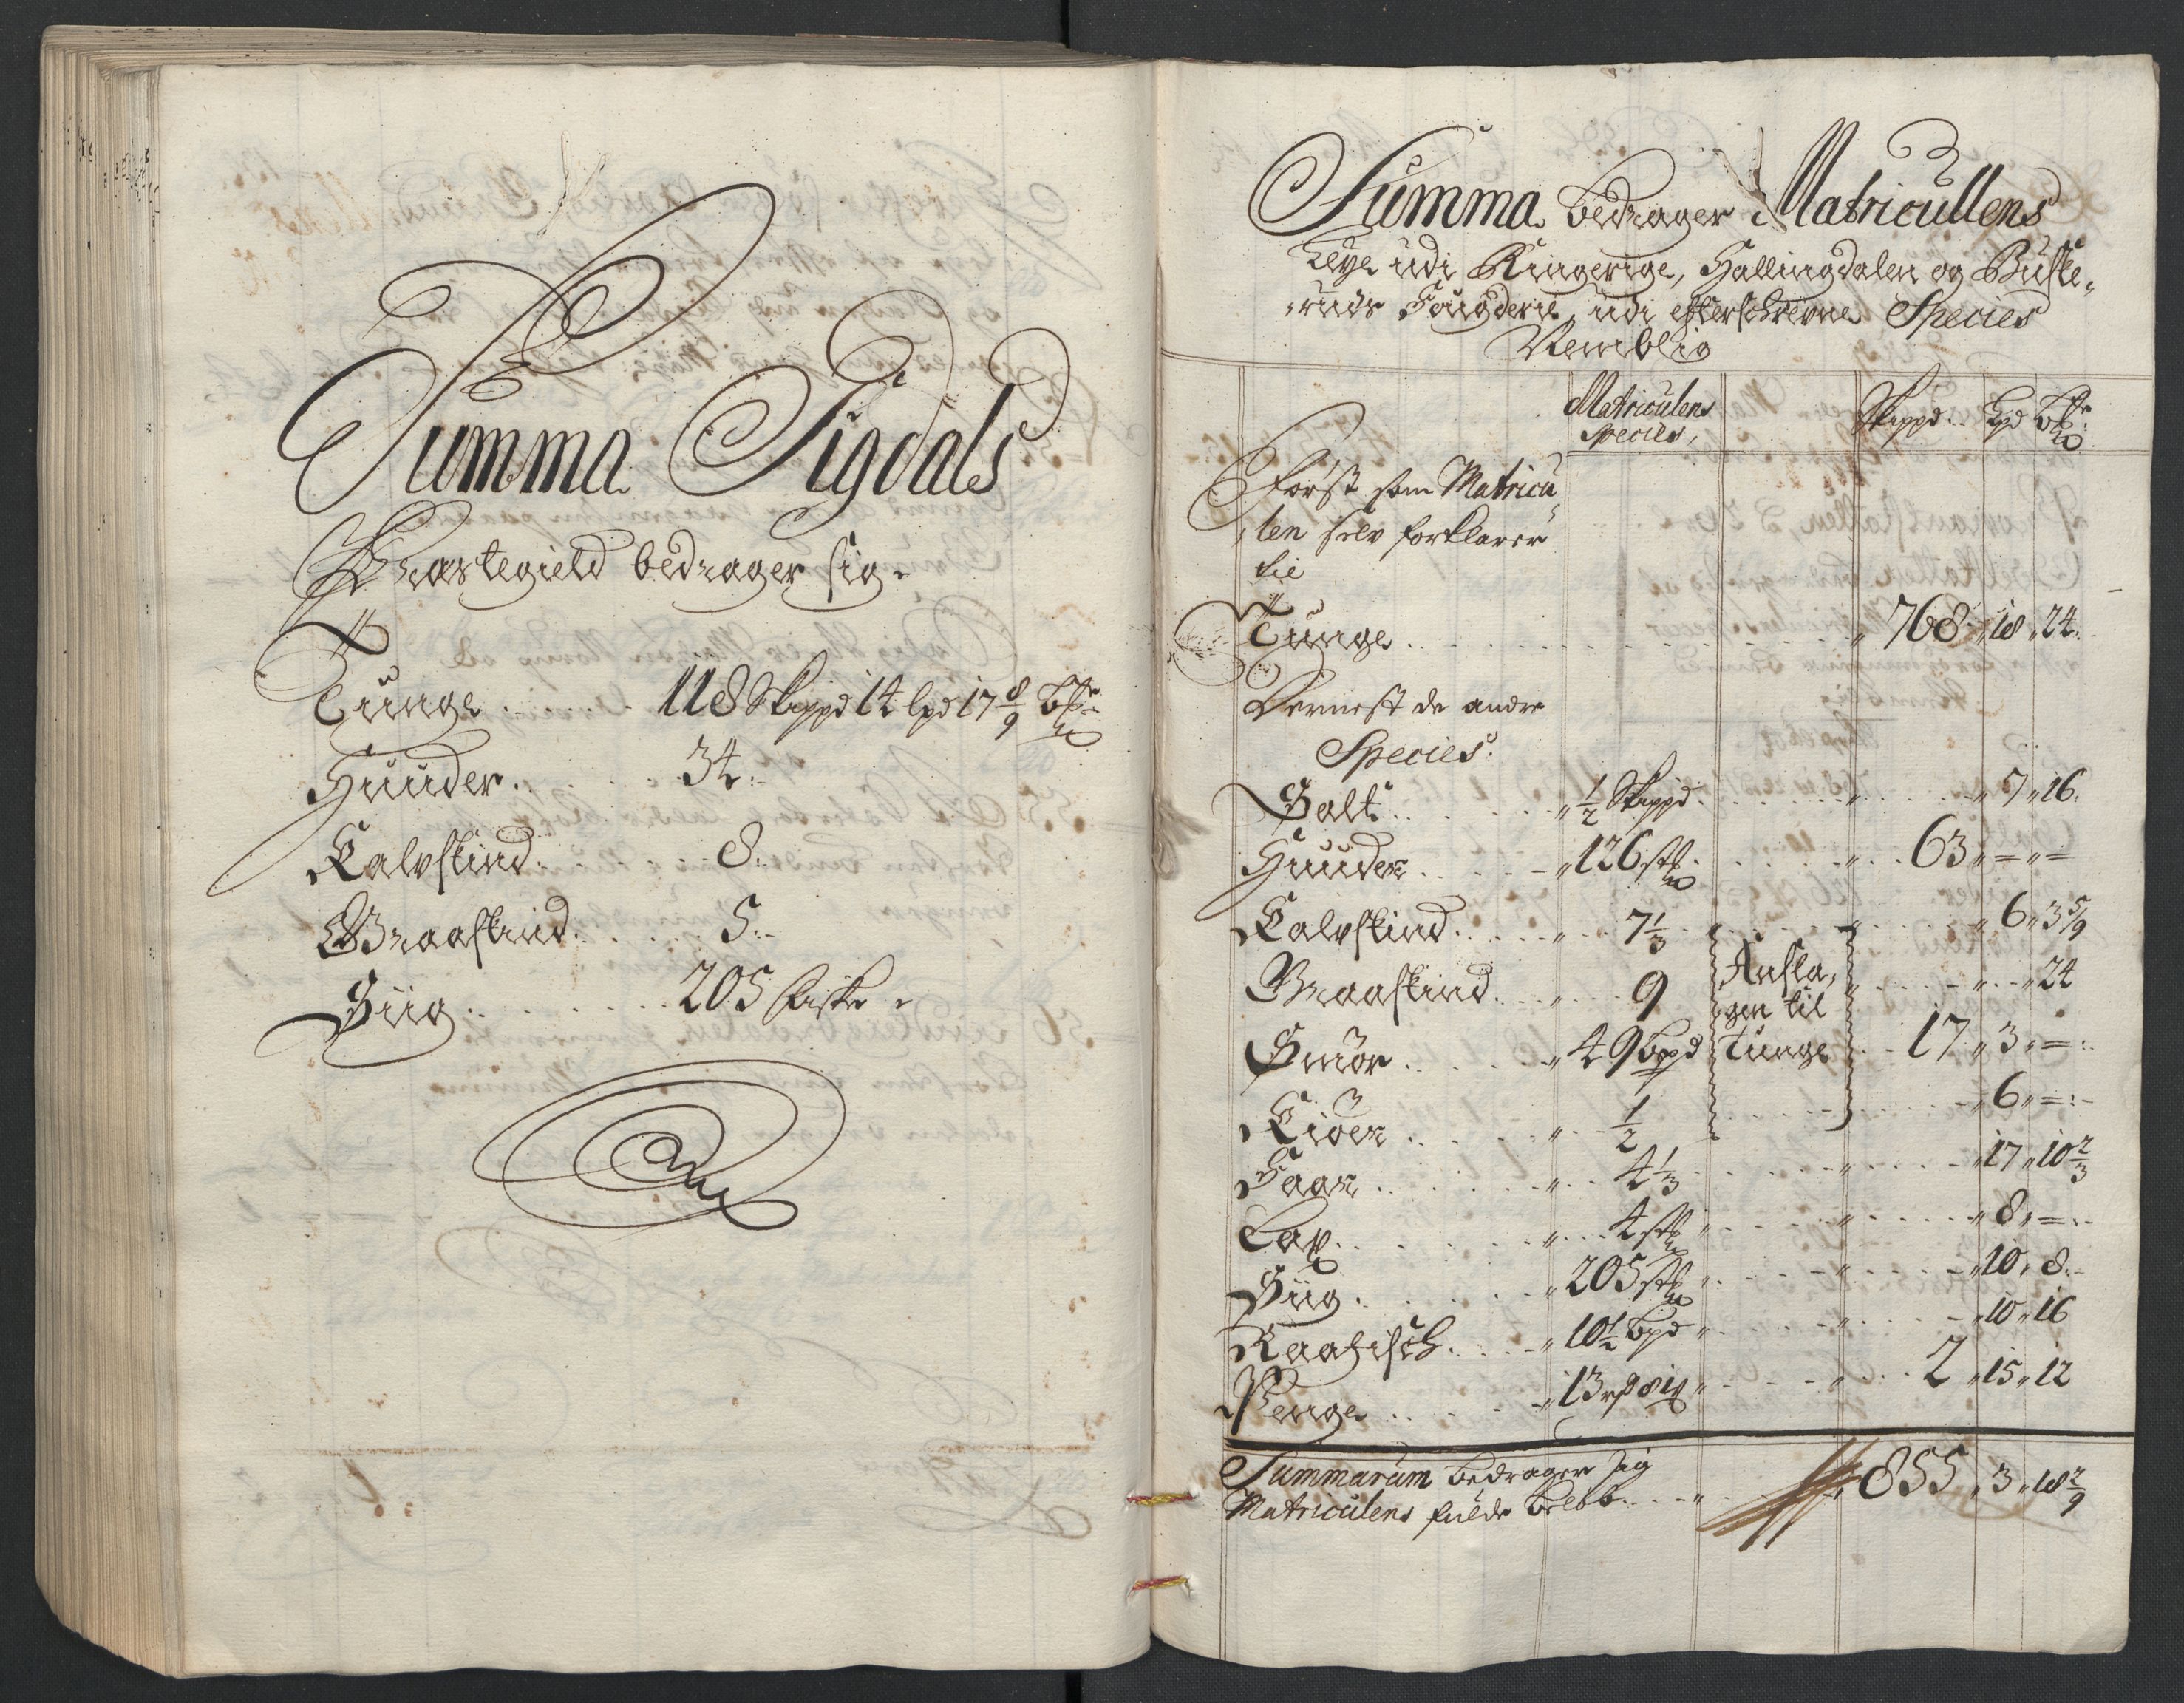 Summa Sigdals
Præstegield bedrager sig.
Tunge . . . . . 118 Skippd 14 lpd 17 8/9 
Huuder . . . . . 34.
Kalvskind . . . . . 8.
Graaskind . . . . . 5.
Siig . . . . . 205 fiske
Summa bedrager Matricullens
Leye udi Ringerige, Hallingdalen og Buske,
ruds Fougderie, udi efterschrevne Species
Nemblig
Matriculens Species, Skippd. Lpd
Først som Matricu,
len selv forklarer
til
Tunge . . . . . 768 18 24.
Dernest de andre
Species.
Salt . . . . . 1/2 Skippd . . . . . 7 16.
Huuder . . . . . 126 st . . . . . 63 = =
Kalvskind . . . . . 7 1/3 . . . . . 6 3 5/9
Graaskind . . . . . 9 Ansla, . . . . . 24
gen til
Smör . . . . . 49 Bpd Tunge . . 17 3 =
Kiöer . . . . . 1/2 . . . . . 6 =
Faar . . . . . 4 1/3 . . . . . 17 10 2/3
Lax . . . . . 4 st . . . . . 8 =
Siig . . . . . 205 st . . . . . 10 8.
Raafisch . . . . . 10 1/2 Bpd . . . . . 10 16
Penge . . . . . 13 . . . . . 2 15 12
Summarum bedrager sig
Matriculens fulde . . . . 855 3 18 2/9